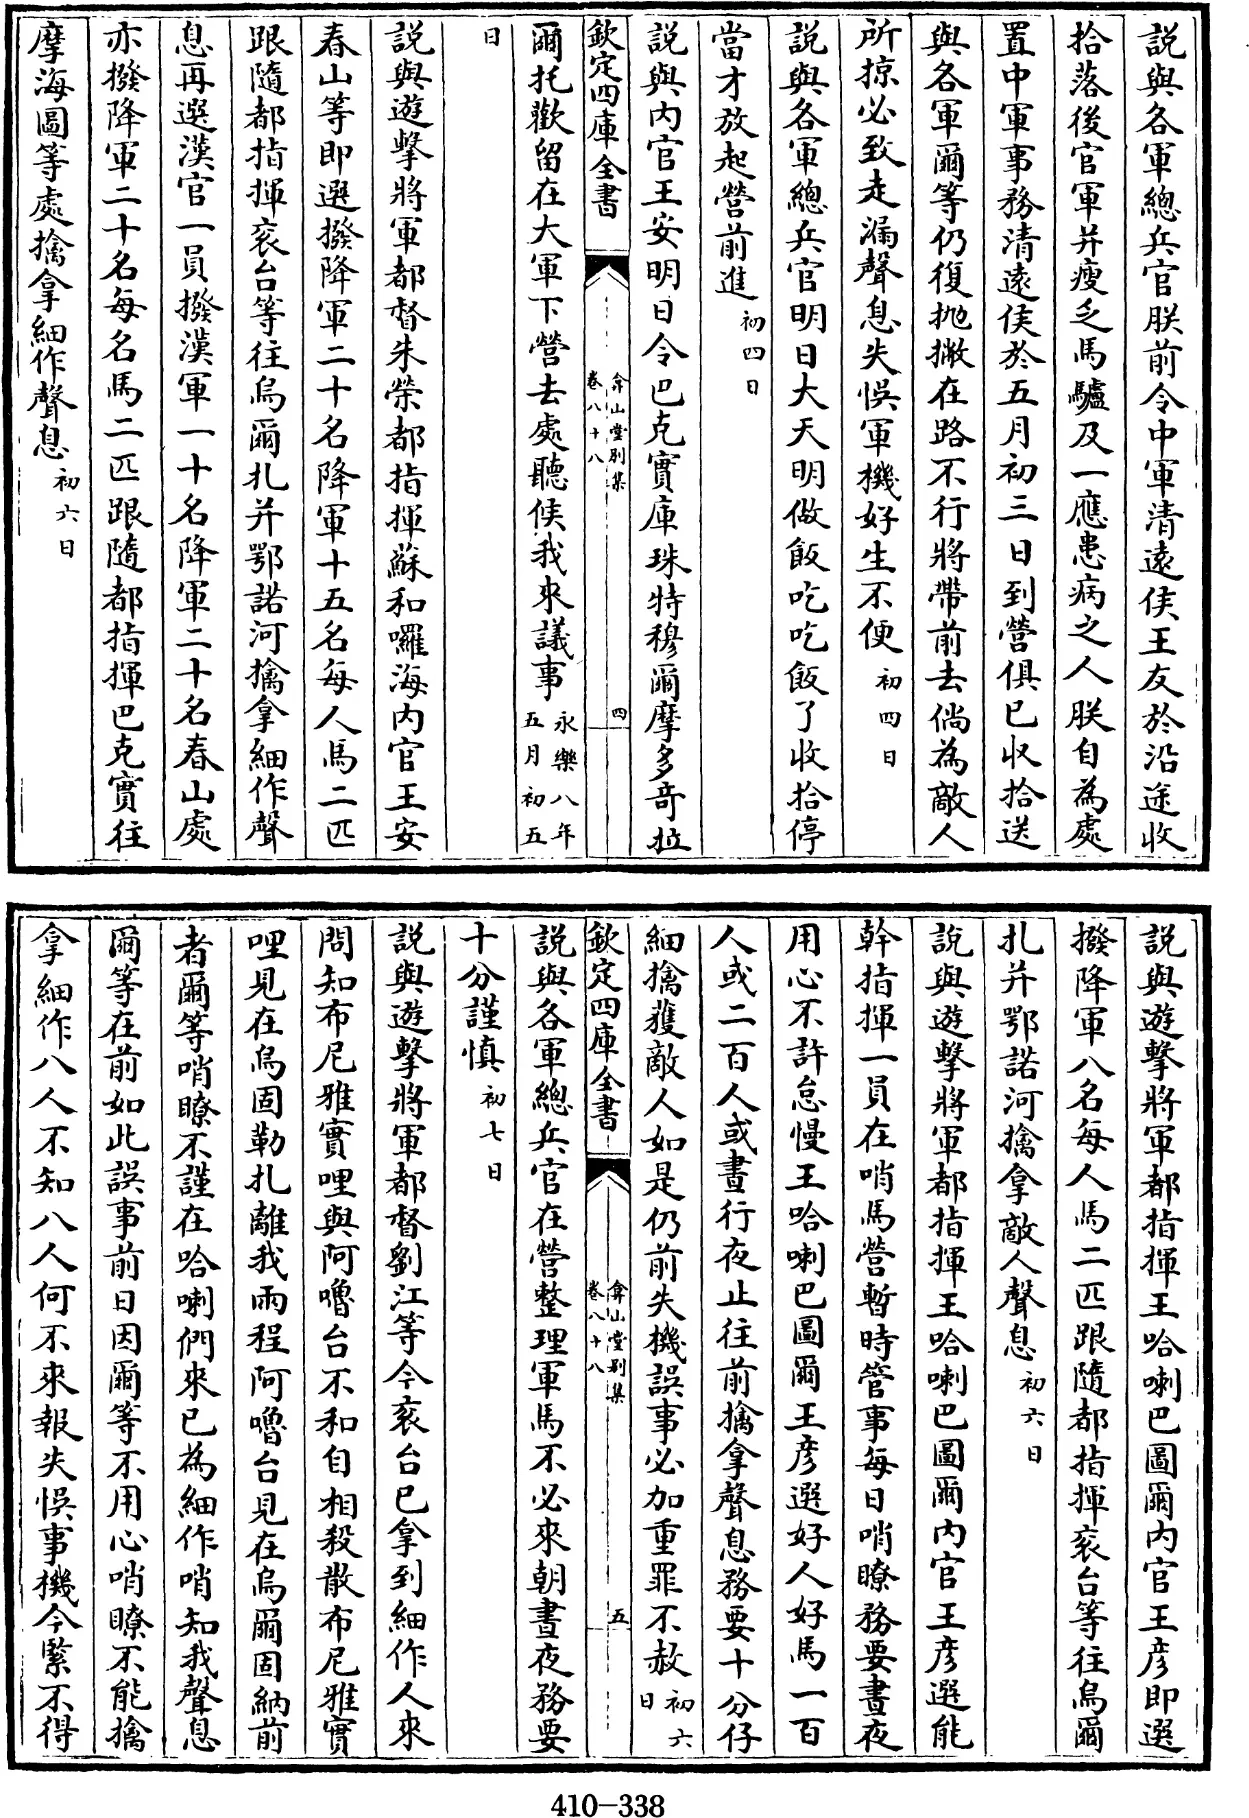 説與各軍總兵官朕前令中軍清遠侯王友於沿途收
拾落後官軍并瘦乏馬驢及一應患病之人朕自為處
置中軍事務清遠侯於五月初三日到營俱已收拾送
與各軍爾等仍復抛撇在路不行將帶前去倘為敵人
所掠必致走漏聲息失悞軍機好生不便初四日
説與各軍總兵官明日大天明做飯吃吃飯了收拾停
當才放起營前進初四日
説與内官王安明日令巴克實庫珠特穆爾摩多竒拉
欽定四庫全書
弇山堂别集
卷八十八
四
爾托歡留在大軍下營去處聽候我來議事永樂八年五月初五
日
説與遊擊將軍都督朱榮都指揮蘇和囉海内官王安
春山等即選撥降軍二十名降軍十五名每人馬二匹
跟隨都指揮衮台等往烏爾扎并鄂諾河擒拿細作聲
息再選漢官一員撥漢軍一十名降軍二十名春山處
亦撥降軍二十名每名馬二匹跟隨都指揮巴克實往
摩海圖等處擒拿細作聲息初六日
説與遊擊將軍都指揮王哈喇巴圖爾内官王彦即選
撥降軍八名每人馬二匹跟隨都指揮衮台等往烏爾
扎并鄂諾河擒拿敵人聲息初六日
說與遊擊將軍都指揮王哈喇巴圖爾内官王彦選能
幹指揮一員在哨馬營暫時管事每日哨瞭務要晝夜
用心不許怠慢王哈喇巴圖爾王彦選好人好馬一百
人或二百人或晝行夜止往前擒拿聲息務要十分仔
細擒獲敵人如是仍前失機誤事必加重罪不赦初六日
欽定四庫全書
弇山堂别集
卷八十八
五
説與各軍總兵官在營整理軍馬不必來朝晝夜務要
十分謹慎初七日
説與遊擊將軍都督劉江等今衮台已拿到細作人來
問知布尼雅實哩與阿嚕台不和自相殺散布尼雅實
哩見在烏固勒扎離我兩程阿嚕台見在烏爾固納前
者爾等哨瞭不謹在哈喇們來已為細作哨知我聲息
爾等在前如此誤事前日因爾等不用心哨瞭不能擒
拿細作八人不知八人何不來報失悞事機今緊不得
410-338